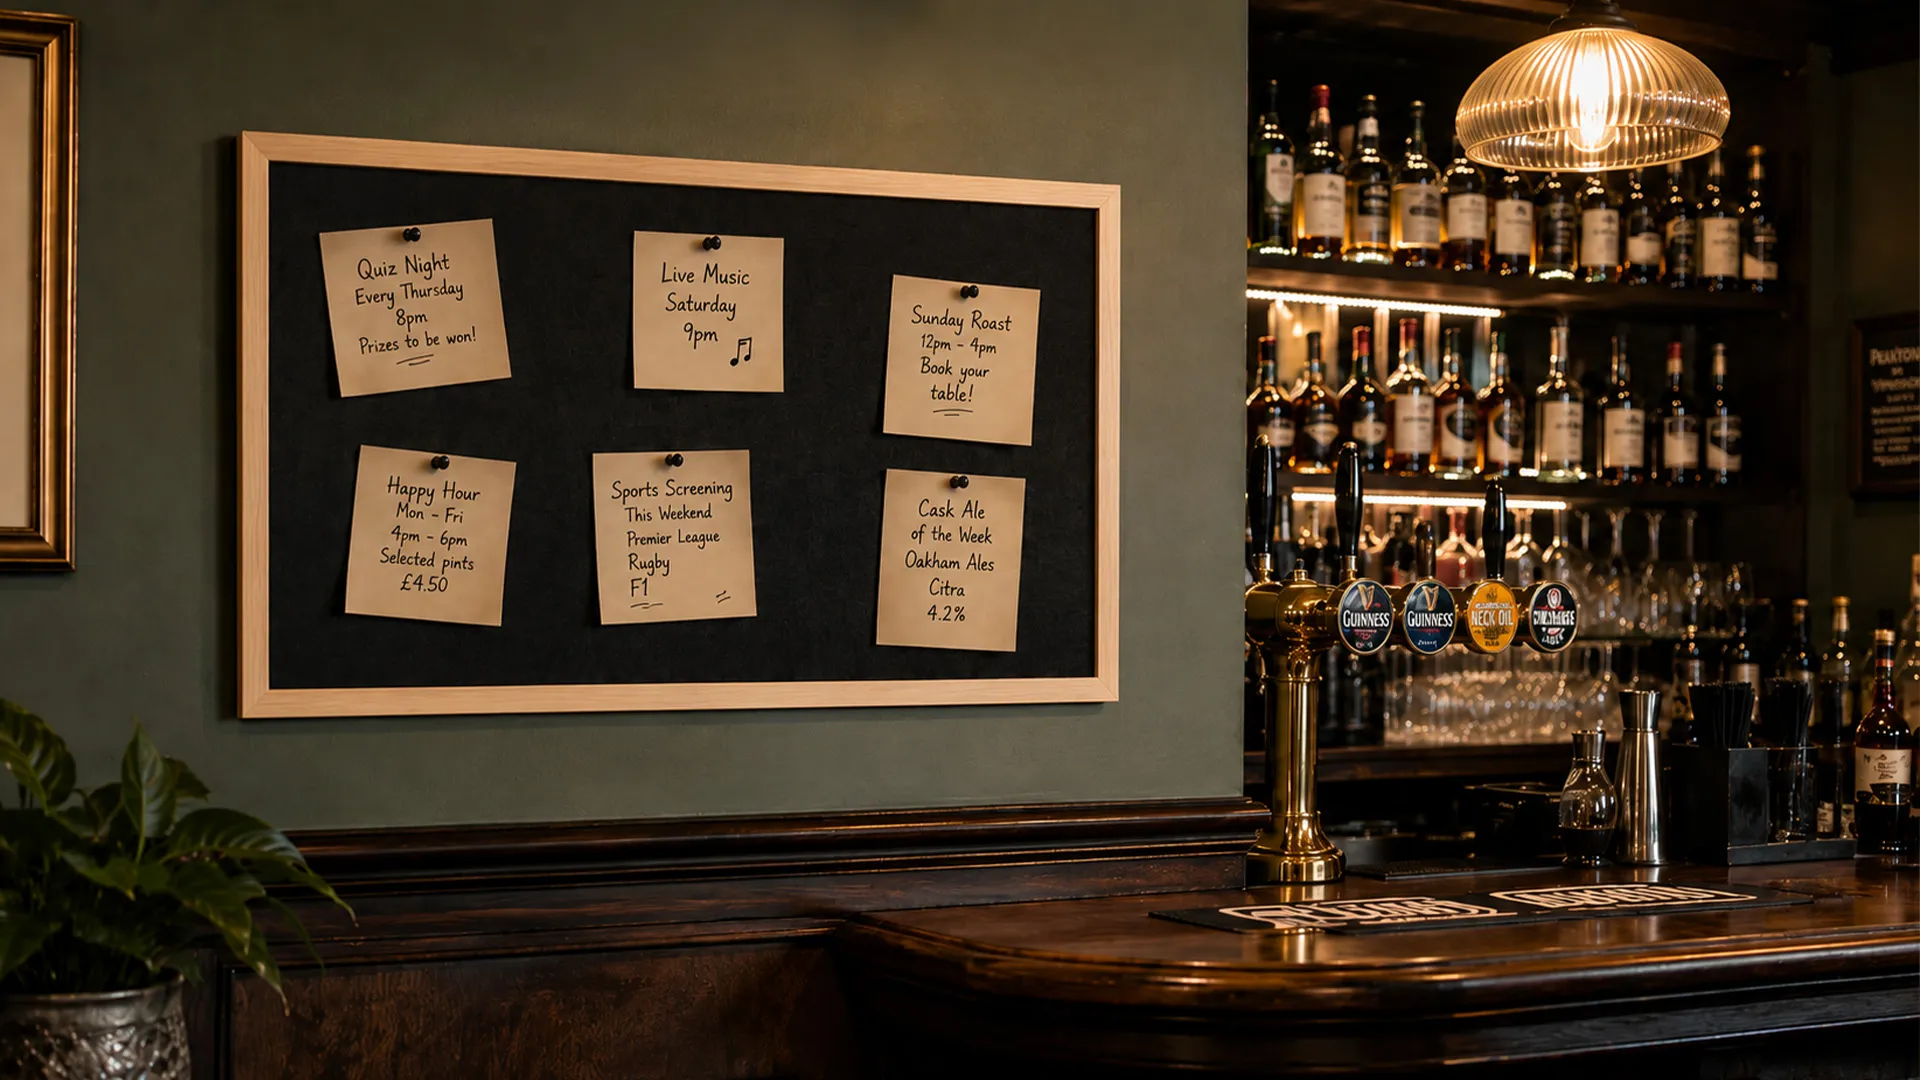 Quiz Night
Every Thursday
8pm
Prizes to be won!
Live Music
Saturday
9pm
Sunday Roast
12pm - 4pm
Book your
table!
Happy Hour
Mon - Fri
4pm - 6pm
Selected pints
£4.50
Sports Screening
This Weekend
Premier League
Rugby
F1
Cask Ale
of the Week
Oakham Ales
Citra
4.2%
GUINNESS
GUINNESS
NECK OIL